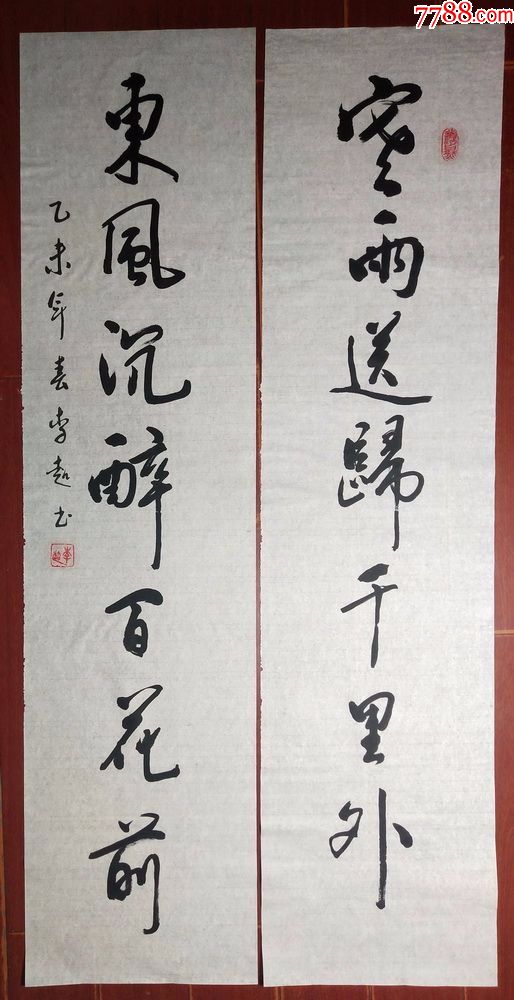 7788.com
寒雨送歸千里外
東風沉醉百花前
乙未年春李超书